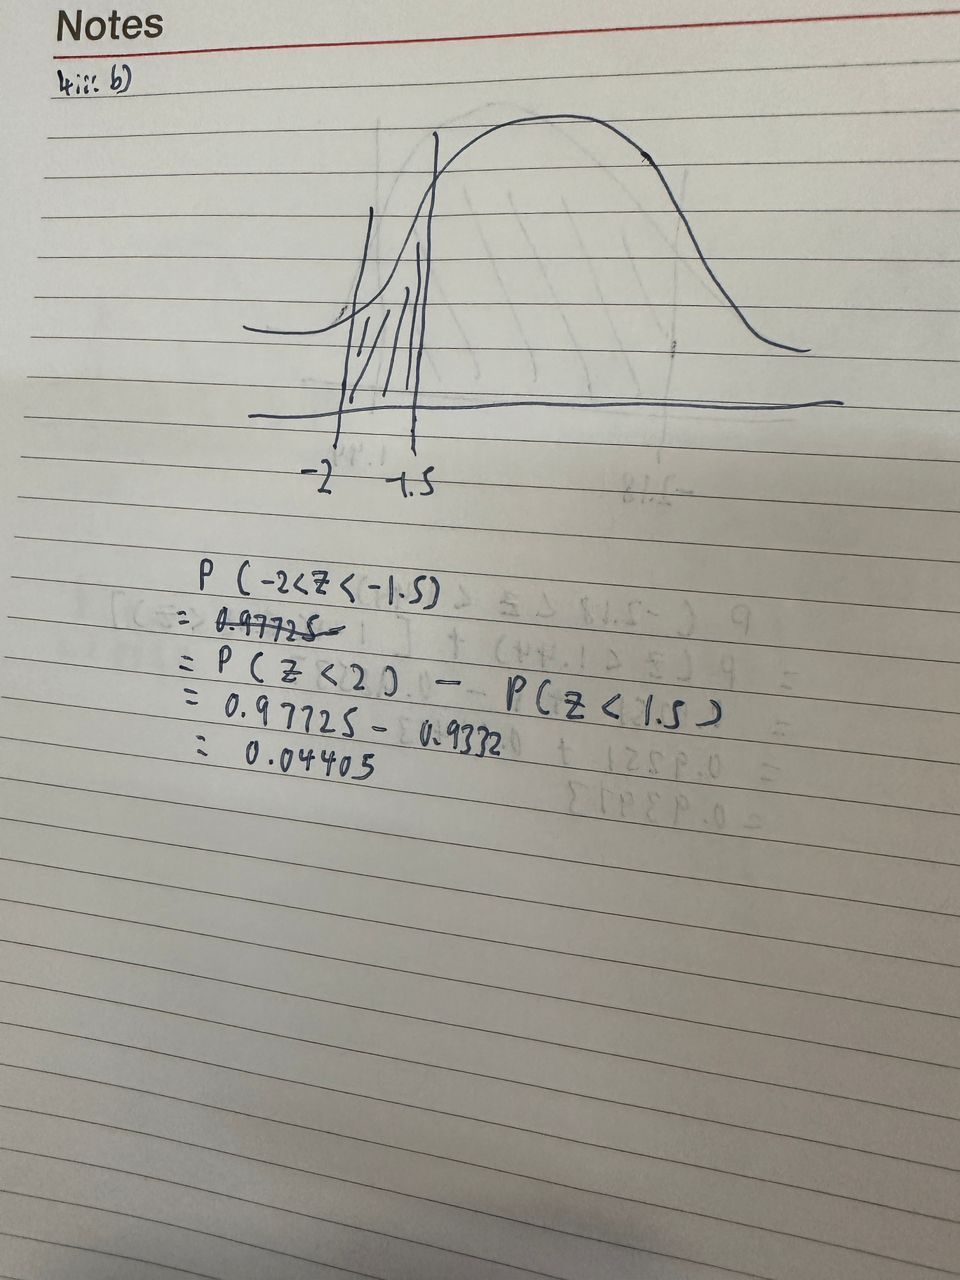 Notes
4ii: b)
-2 -1.5
P (-2<Z<-1.5)
= 0.97725-
= P(Z<2) - P(Z<1.5)
= 0.97725 - 0.9332
= 0.04405